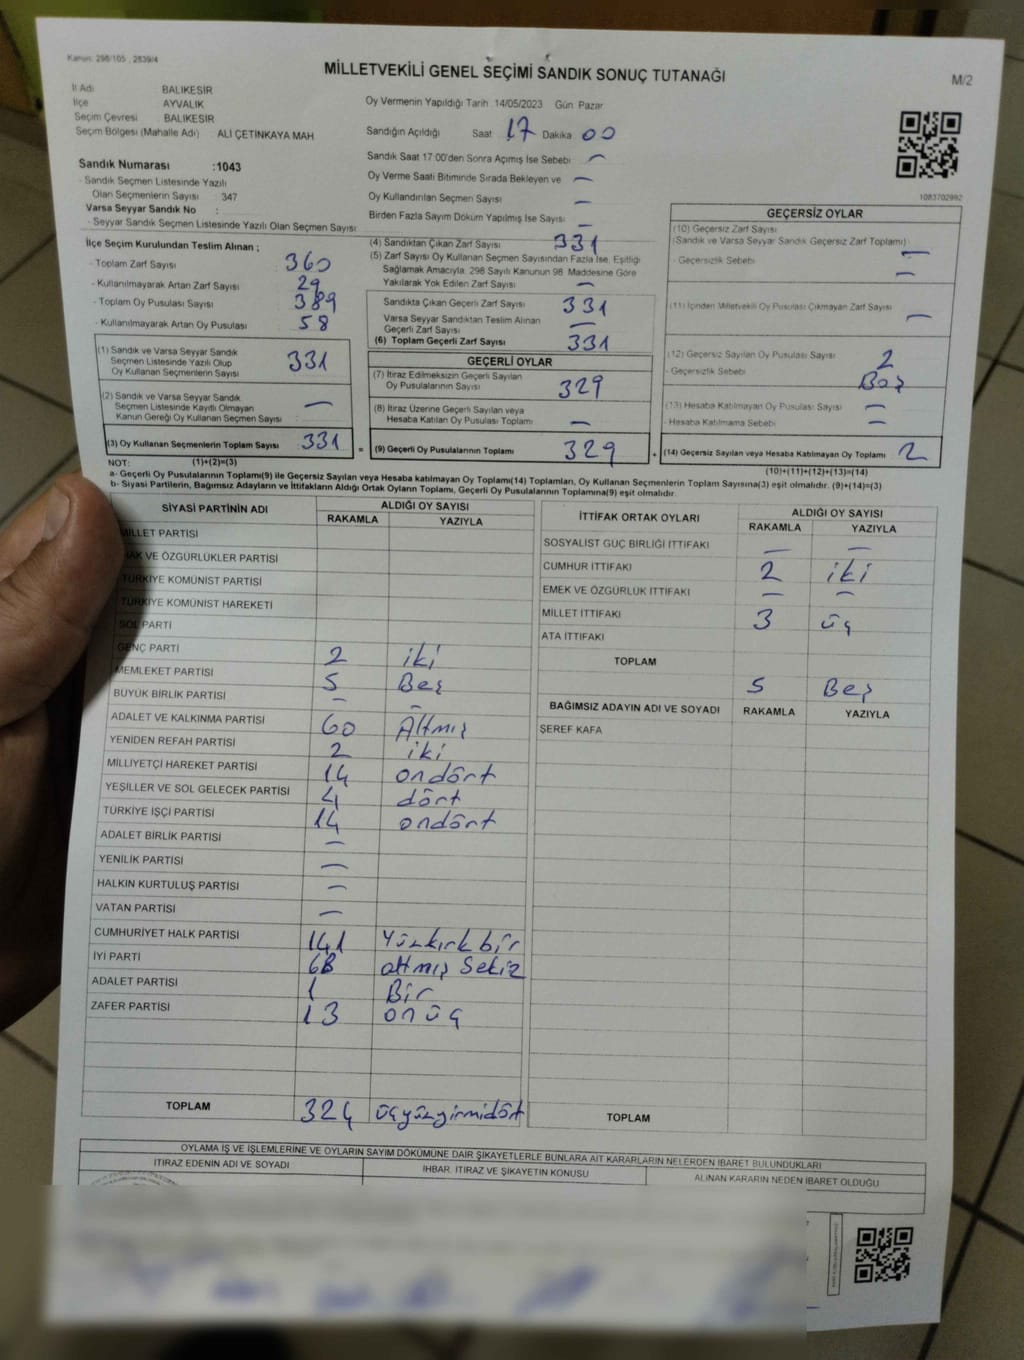 Kanun: 298/105 , 2839/4
MİLLETVEKİLİ GENEL SEÇİMİ SANDIK SONUÇ TUTANAĞI
M/2
İl Adı BALIKESİR
İlçe AYVALIK
Seçim Çevresi BALIKESİR
Seçim Bölgesi (Mahalle Adı) ALİ ÇETİNKAYA MAH
Sandık Numarası :1043
- Sandık Seçmen Listesinde Yazılı
Olan Seçmenlerin Sayısı : 347
Varsa Seyyar Sandık No :
- Seyyar Sandık Seçmen Listesinde Yazılı Olan Seçmen Sayısı
Oy Vermenin Yapıldığı Tarih 14/05/2023 Gün Pazar
Sandığın Açıldığı Saat 17 Dakika 00
Sandık Saat 17 00'den Sonra Açımış İse Sebebi —
Oy Verme Saati Bitiminde Sırada Bekleyen ve —
Oy Kullandırılan Seçmen Sayısı —
Birden Fazla Sayım Döküm Yapılmış İse Sayısı —
1083702992
İlçe Seçim Kurulundan Teslim Alınan ;
- Toplam Zarf Sayısı : 360
- Kullanılmayarak Artan Zarf Sayısı : 29
- Toplam Oy Pusulası Sayısı : 389
- Kullanılmayarak Artan Oy Pusulası : 58
(1) Sandık ve Varsa Seyyar Sandık
Seçmen Listesinde Yazılı Olup
Oy Kullanan Seçmenlerin Sayısı : 331
(2) Sandık ve Varsa Seyyar Sandık
Seçmen Listesinde Kayıtlı Olmayan
Kanun Gereği Oy Kullanan Seçmen Sayısı : —
(3) Oy Kullanan Seçmenlerin Toplam Sayısı : 331 =
(4) Sandıktan Çıkan Zarf Sayısı : 331
(5) Zarf Sayısı Oy Kullanan Seçmen Sayısından Fazla İse, Eşitliği
Sağlamak Amacıyla, 298 Sayılı Kanunun 98. Maddesine Göre
Yakılarak Yok Edilen Zarf Sayısı : —
Sandıkta Çıkan Geçerli Zarf Sayısı : 331
Varsa Seyyar Sandıktan Teslim Alınan
Geçerli Zarf Sayısı : —
(6) Toplam Geçerli Zarf Sayısı : 331
GEÇERLİ OYLAR
(7) İtiraz Edilmeksizin Geçerli Sayılan
Oy Pusulalarının Sayısı : 329
(8) İtiraz Üzerine Geçerli Sayılan veya
Hesaba Katılan Oy Pusulası Toplamı : —
(9) Geçerli Oy Pusulalarının Toplamı : 329 +
GEÇERSİZ OYLAR
(10) Geçersiz Zarf Sayısı
(Sandık ve Varsa Seyyar Sandık Geçersiz Zarf Toplamı) —
- Geçersizlik Sebebi : —
(11) İçinden Milletvekili Oy Pusulası Çıkmayan Zarf Sayısı : —
(12) Geçersiz Sayılan Oy Pusulası Sayısı : 2
- Geçersizlik Sebebi : Boş
(13) Hesaba Katılmayan Oy Pusulası Sayısı : —
- Hesaba Katılmama Sebebi : —
(14) Geçersiz Sayılan veya Hesaba Katılmayan Oy Toplamı : 2
NOT: (1)+(2)=(3)
(10)+(11)+(12)+(13)=(14)
a- Geçerli Oy Pusulalarının Toplamı(9) ile Geçersiz Sayılan veya Hesaba katılmayan Oy Toplamı(14) Toplamları, Oy Kullanan Seçmenlerin Toplam Sayısına(3) eşit olmalıdır. (9)+(14)=(3)
b- Siyasi Partilerin, Bağımsız Adayların ve İttifakların Aldığı Ortak Oyların Toplamı, Geçerli Oy Pusulalarının Toplamına(9) eşit olmalıdır.
SİYASİ PARTİNİN ADI ALDIĞI OY SAYISI
RAKAMLA YAZIYLA
MİLLET PARTİSİ
HAK VE ÖZGÜRLÜKLER PARTİSİ
TÜRKİYE KOMÜNİST PARTİSİ
TÜRKİYE KOMÜNİST HAREKETİ
SOL PARTİ
GENÇ PARTİ 2 iki
MEMLEKET PARTİSİ 5 Beş
BÜYÜK BİRLİK PARTİSİ — —
ADALET VE KALKINMA PARTİSİ 60 Altmış
YENİDEN REFAH PARTİSİ 2 iki
MİLLİYETÇİ HAREKET PARTİSİ 14 ondört
YEŞİLLER VE SOL GELECEK PARTİSİ 4 dört
TÜRKİYE İŞÇİ PARTİSİ 14 ondört
ADALET BİRLİK PARTİSİ —
YENİLİK PARTİSİ —
HALKIN KURTULUŞ PARTİSİ —
VATAN PARTİSİ —
CUMHURİYET HALK PARTİSİ 141 Yüzkırkbir
İYİ PARTİ 68 altmış Sekiz
ADALET PARTİSİ 1 Bir
ZAFER PARTİSİ 13 onüç
TOPLAM 324 üçyüzyirmidört
İTTİFAK ORTAK OYLARI ALDIĞI OY SAYISI
RAKAMLA YAZIYLA
SOSYALİST GÜÇ BİRLİĞİ İTTİFAKI — —
CUMHUR İTTİFAKI 2 iki
EMEK VE ÖZGÜRLÜK İTTİFAKI — —
MİLLET İTTİFAKI 3 üç
ATA İTTİFAKI
TOPLAM 5 Beş
BAĞIMSIZ ADAYIN ADI VE SOYADI RAKAMLA YAZIYLA
ŞEREF KAFA
TOPLAM
OYLAMA İŞ VE İŞLEMLERİNE VE OYLARIN SAYIM DÖKÜMÜNE DAİR ŞİKAYETLERLE BUNLARA AİT KARARLARIN NELERDEN İBARET BULUNDUKLARI
İTİRAZ EDENİN ADI VE SOYADI İHBAR, İTİRAZ VE ŞİKAYETİN KONUSU ALINAN KARARIN NEDEN İBARET OLDUĞU